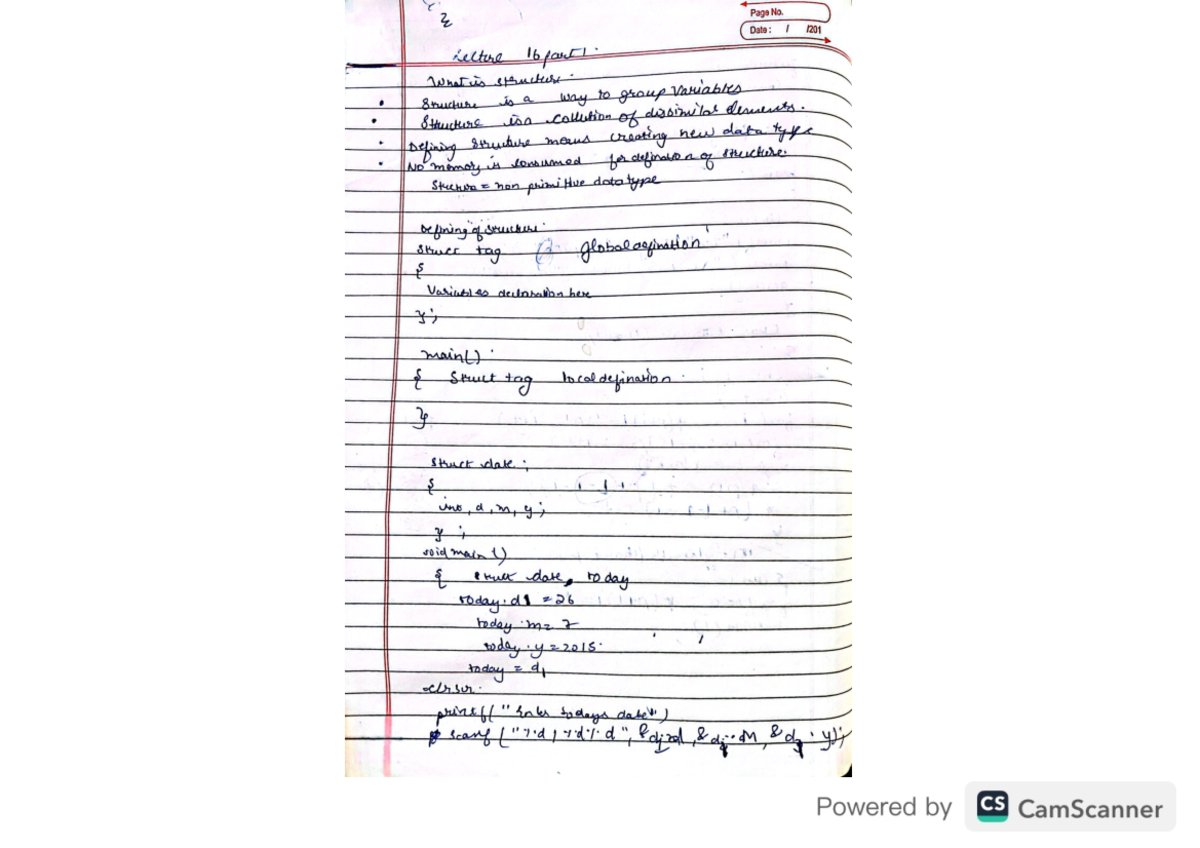 }
Page No.
Date: / /201
Lecture 16 part 1.
What is structure.
• Structure is a way to group variables
• Structure is a collection of dissimilar elements.
• Defining Structure means creating new data type
• No memory is consumed for defination of structure.
Structure = non primitive data type
Defining of structure.
Struct tag global defination
{
Variables declaration here
};
main()
{ Struct tag local defination
}
Struct date ;
{
int, d, m, y ;
} ;
void main ()
{ struct date, today
today.d1 = 26
today.m= 7
today.y = 2015.
today = d1
clrscr.
printf(" Enter todays date")
scanf ("%d, %d%d",
Powered by CS CamScanner